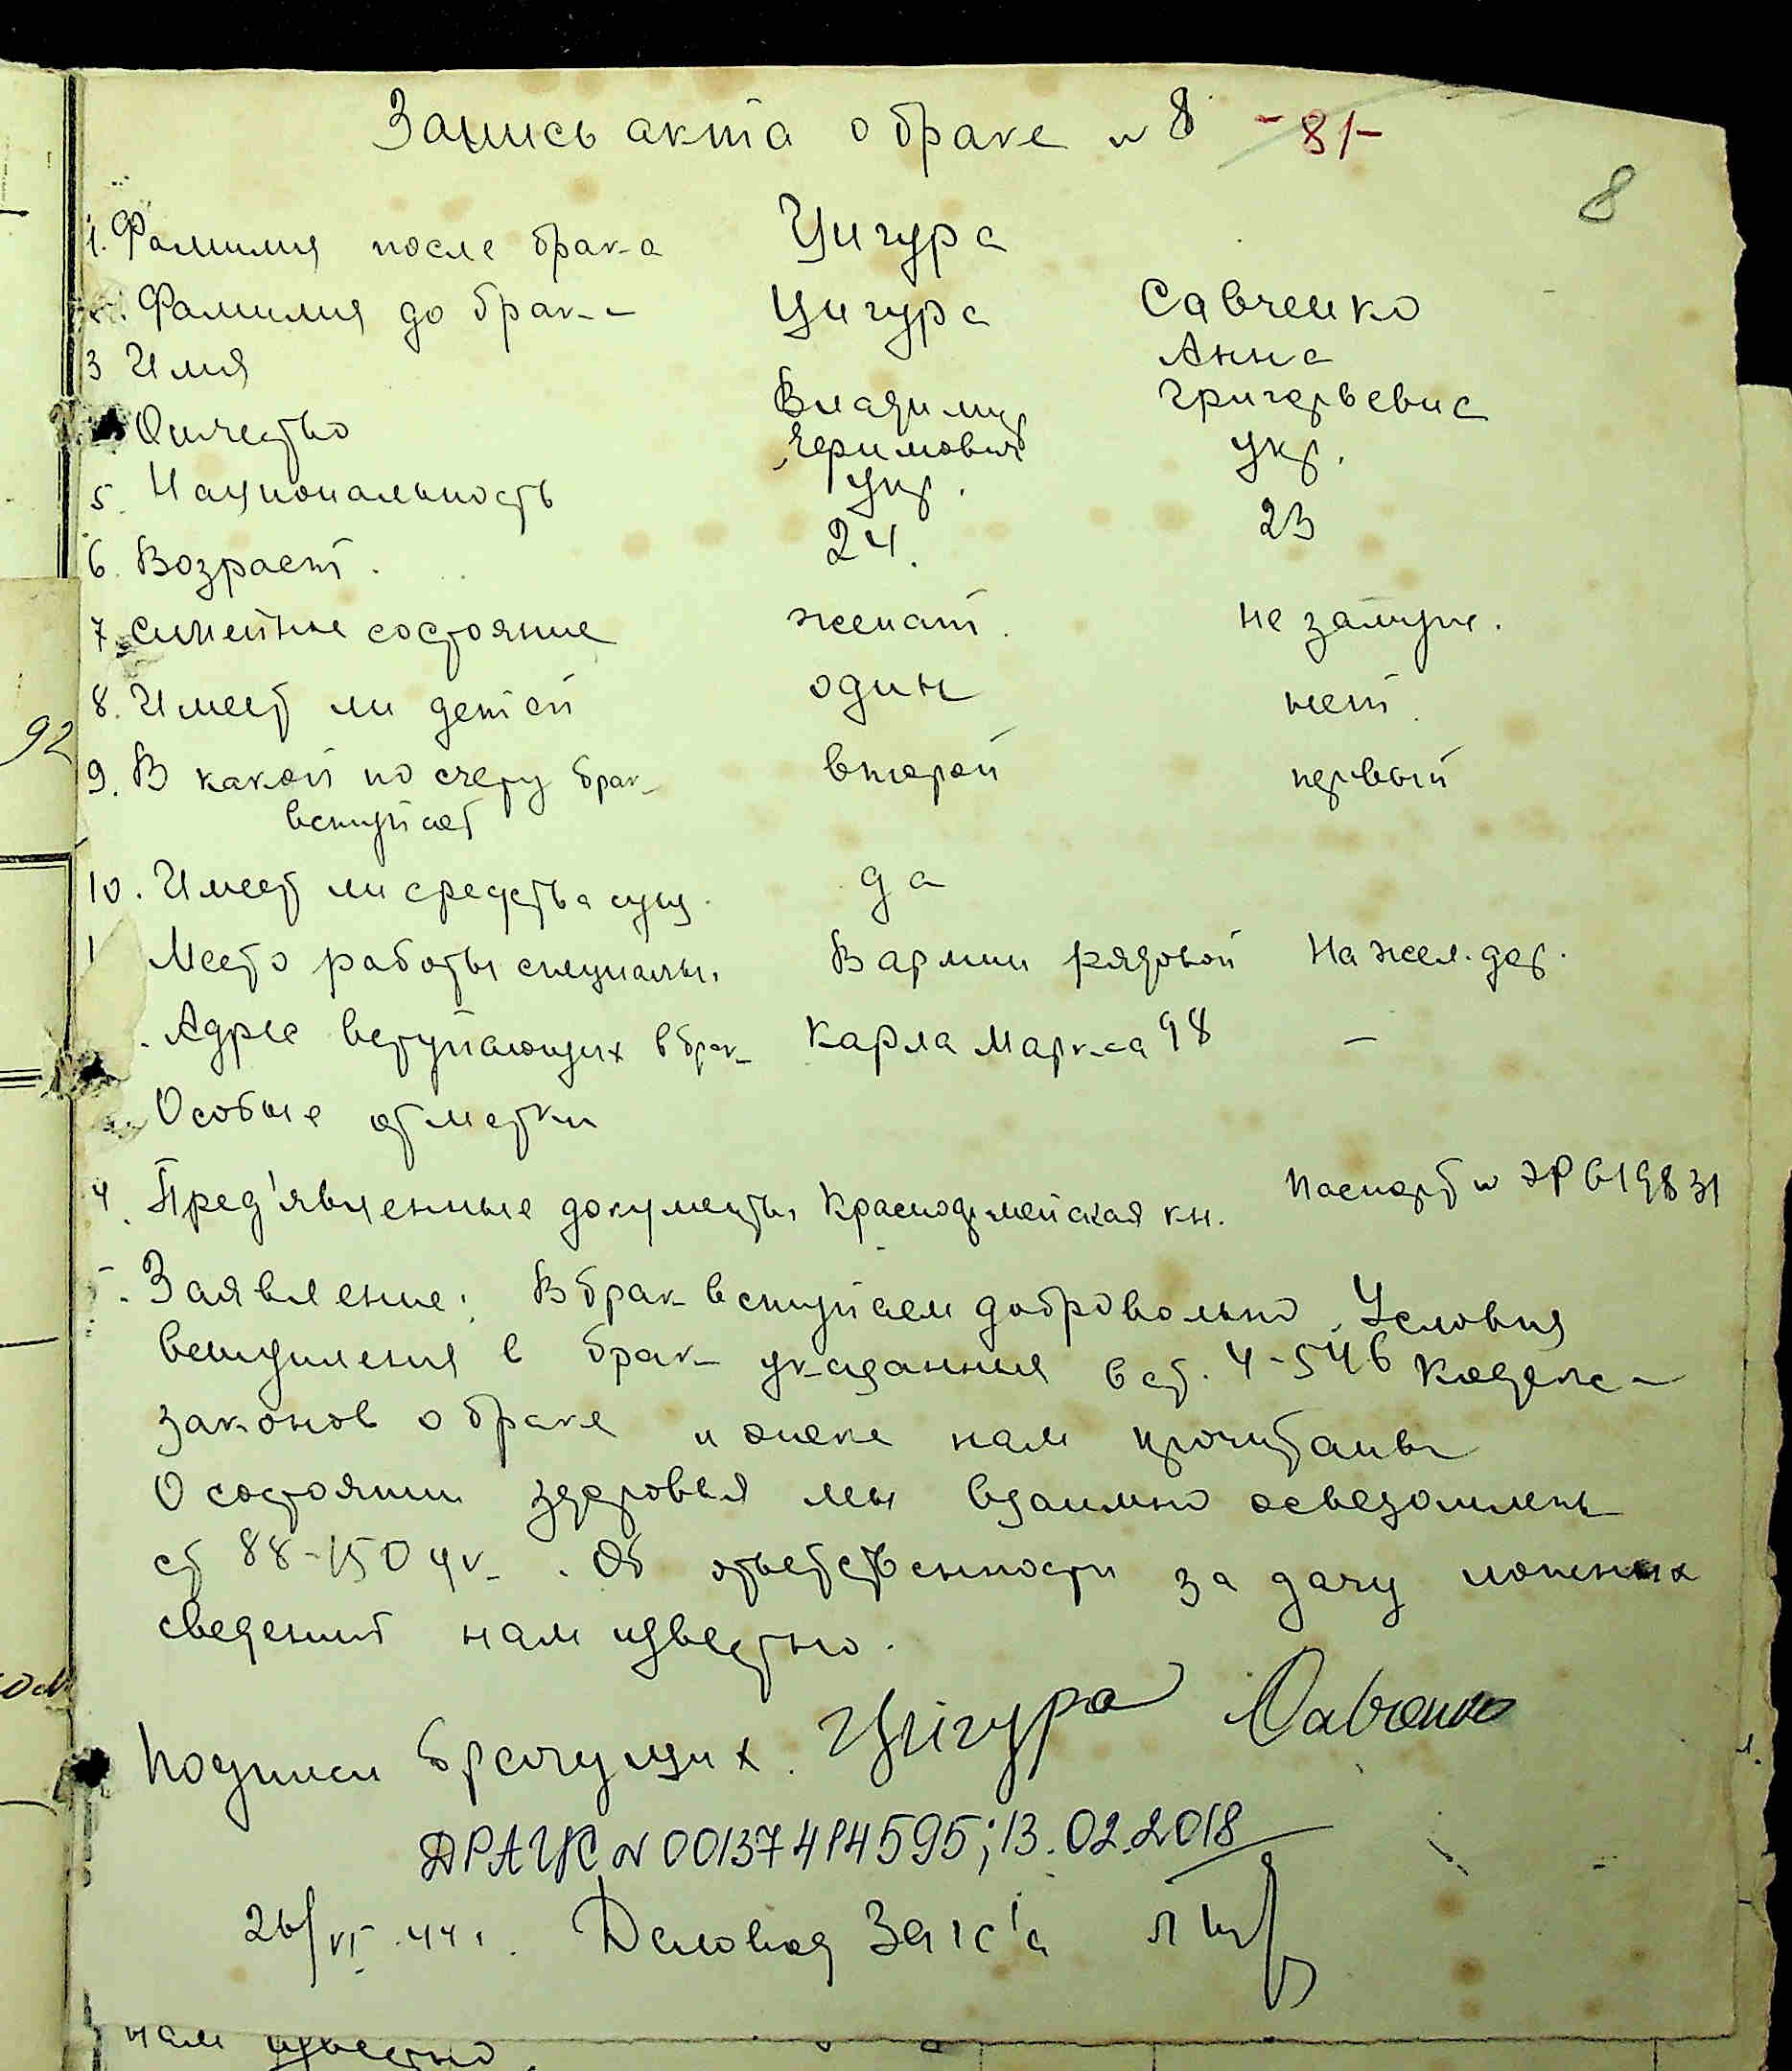 Запись акта о браке № 8 -81-
8
1. Фамилия после брака Цигура
Фамилия до брака Цигура Савченко
3 Имя Владимир Анна
Отчество Григорьевна
5. Национальность укр. укр.
6. Возраст. 24. 23
7. Симейное состояние женат. не замуж.
8. Имеет ли детей один нет.
9. В какой по счету брак второй первый
вступает
10. Имеет ли средства сущ. да
Место работы специальн. В армии рядовой На жел. дор.
Адрес вступающих в брак Карла Маркса 98 —
Особые отметки
4. Пред'явленные документы Красноармейская кн. Паспорт № ЭР 619831
Заявление: В брак вступаем добровольно. Условия
вступления в брак указанныя в ст. 4-546 Кодекса
законов о браке и опеке нам прочитаны
О состоянии здоровья мы взаимно осведомлены
ст 88-150 ук. Об ответственности за дачу ложных
сведений нам известно.
Подписи брачущихх. Цігура Савченко
ДРАЦС № 00137414595; 13.02.2018
26/VI 44 г. Деловод Загс'а
нам известно.
92